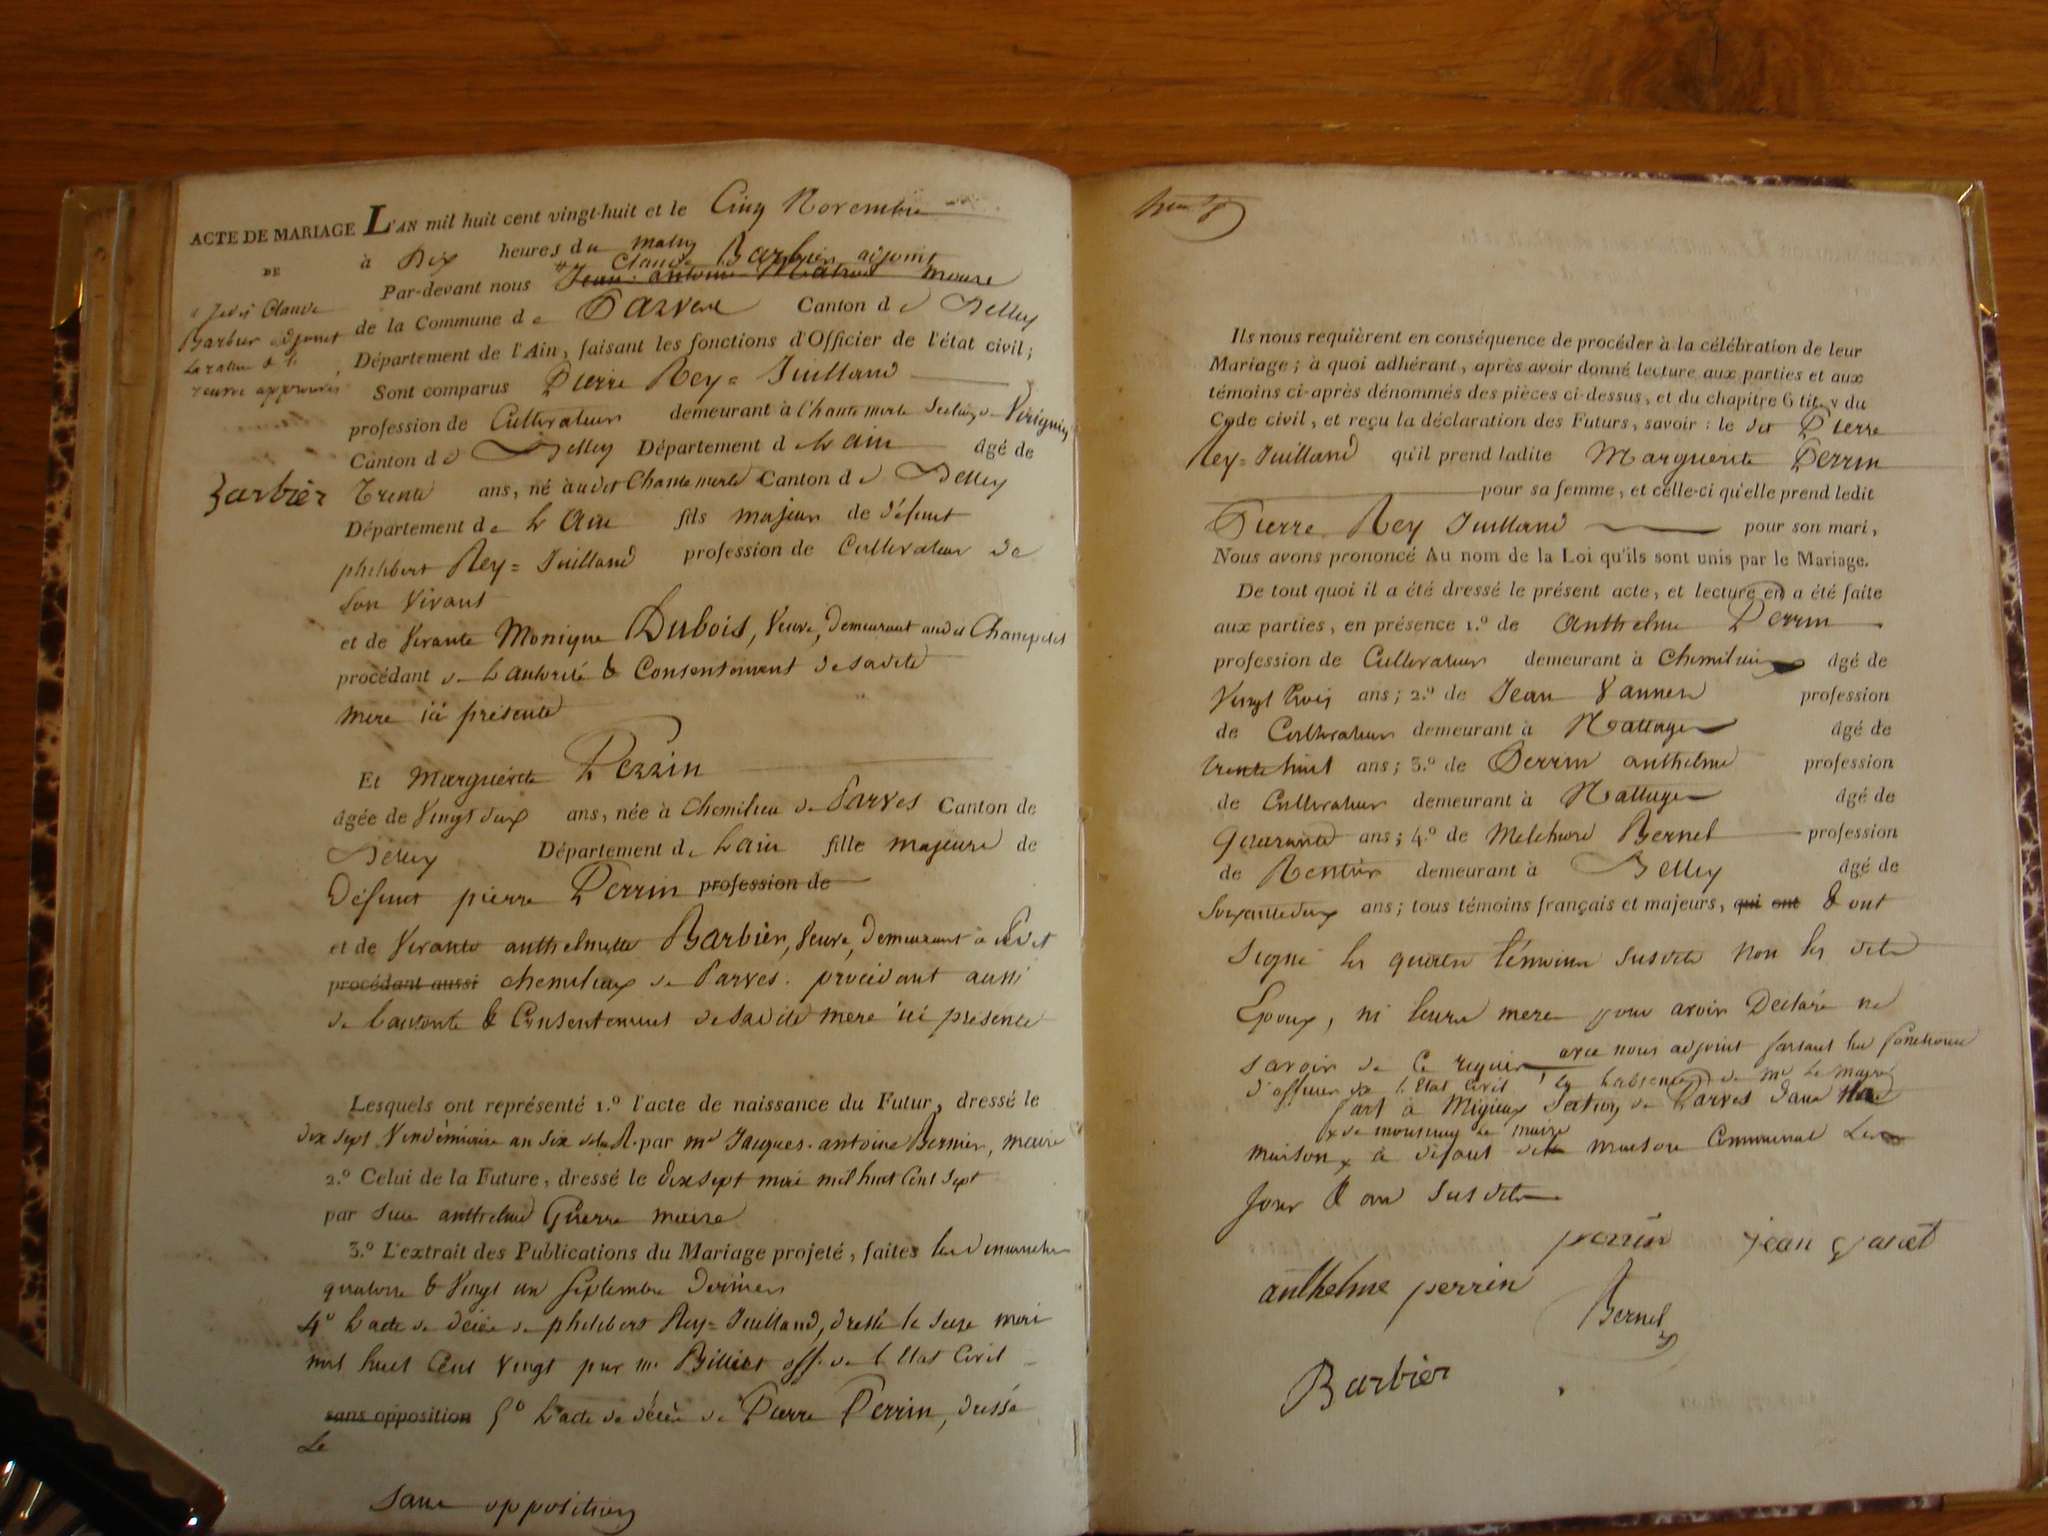 ACTE DE MARIAGE
DE
L'AN mil huit cent vingt-huit et le Cinq Novembre
à Dix heures du matin
Claude Barbier adjoint
Par-devant nous Jean antoine maire
de la Commune de Parves Canton de Belley
Département de l'Ain, faisant les fonctions d'Officier de l'état civil;
Claude
Barbier adjoint
Barbier
Sont comparus Pierre Rey=Juilland
profession de Cultivateur demeurant à Chantemerle Section de Virignin
Canton de Belley Département de L'ain âgé de
Trente ans, né audit Chantemerle Canton de Belley
Département de L'Ain fils majeur de défunt
philibert Rey=Juilland profession de Cultivateur de
son vivant
et de vivante Monique Dubois, veuve, demeurant audit
procédant de L'autorité & Consentement de sadite
mere ici présente
Et Marguerite Perrin
âgée de vingt deux ans, née à Chemilieu de Parves Canton de
Belley Département de L'ain fille majeure de
Défunt pierre Perrin profession de
et de vivante anthelmette Barbier, veuve, demeurant à
procédant aussi chemilieux de Parves. procédant aussi
de l'autorité & Consentement de sadite mere ici présente
Lesquels ont représenté 1.º l'acte de naissance du Futur, dressé le
dix sept Vendémiaire an six par mr Jacques-antoine Bernier, maire
2.º Celui de la Future, dressé le dix sept mai mil huit Cent sept
par sieur anthelme Guerre maire
3.º L'extrait des Publications du Mariage projeté, faites les dimanches
quatorze & vingt un septembre derniers
4º L'acte de décès de philibert Rey=Juilland, dressé le seize mai
mil huit Cent vingt par mr Billiet off. de l'Etat Civil
sans opposition 5º L'acte de décès de Pierre Perrin, dressé
Le
sans opposition
Ils nous requièrent en conséquence de procéder à la célébration de leur
Mariage; à quoi adhérant, après avoir donné lecture aux parties et aux
témoins ci-après dénommés des pièces ci-dessus, et du chapitre 6 tit. v du
Code civil, et reçu la déclaration des Futurs, savoir: le dit Pierre
Rey=Juilland qu'il prend ladite Marguerite Perrin
pour sa femme, et celle-ci qu'elle prend ledit
Pierre Rey Juilland pour son mari,
Nous avons prononcé Au nom de la Loi qu'ils sont unis par le Mariage.
De tout quoi il a été dressé le présent acte, et lecture en a été faite
aux parties, en présence 1.º de Anthelme Perrin
profession de Cultivateur demeurant à Chemilieu âgé de
vingt trois ans; 2.º de Jean profession
de Cultivateur demeurant à Nattages âgé de
trente huit ans; 3.º de Perrin anthelme profession
de Cultivateur demeurant à Nattages âgé de
quarante ans; 4.º de Melchiore Bernel profession
de Rentier demeurant à Belley âgé de
soixante deux ans; tous témoins français et majeurs, qui ont & ont
signé les quatre témoins susdits non les dits
Epoux, ni leurs mere pour avoir Déclaré ne
savoir de Ce requis avec nous adjoint faisant les fonctions
d'officier de l'Etat Civil en L'absence de mr Le maire
fait à Migieux Section de Parves dans
de monsieur Le maire
maison à défaut de maison Communal Les
Jour & an susdits
perrin jean
anthelme perrin
Bernel
Barbier